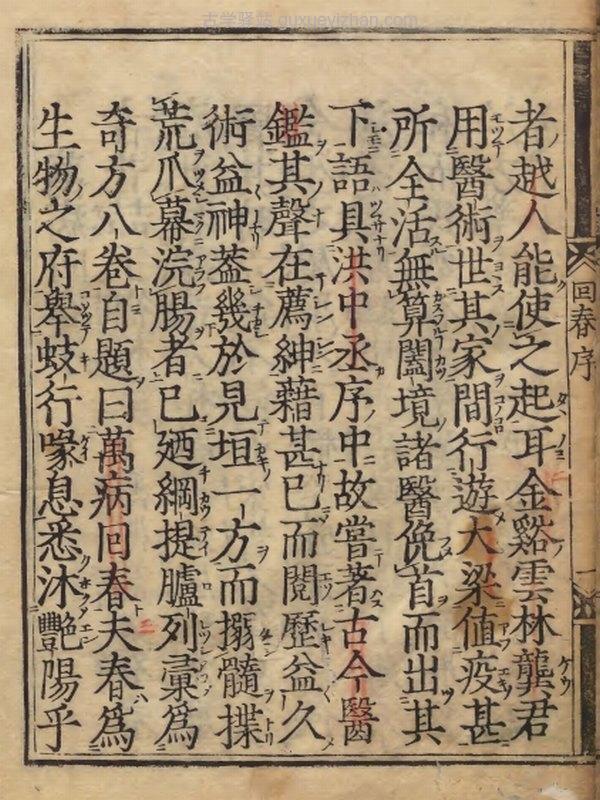 古学驿站 guxueyizhan.com
回春序
一
者越人能使之起耳金谿雲林龔君
用醫術世其家間行遊大梁値疫甚
所全活無算闔境諸醫俛首而出其
下語具洪中丞序中故嘗著古今醫
鑑其聲在薦紳藉甚已而閱歷益久
術益神葢幾於見垣一方而搦髓揲
荒爪幕浣腸者已廼綱提臚列彙爲
奇方八卷自題曰萬病回春夫春爲
生物之府舉蚑行喙息悉沐豔陽乎